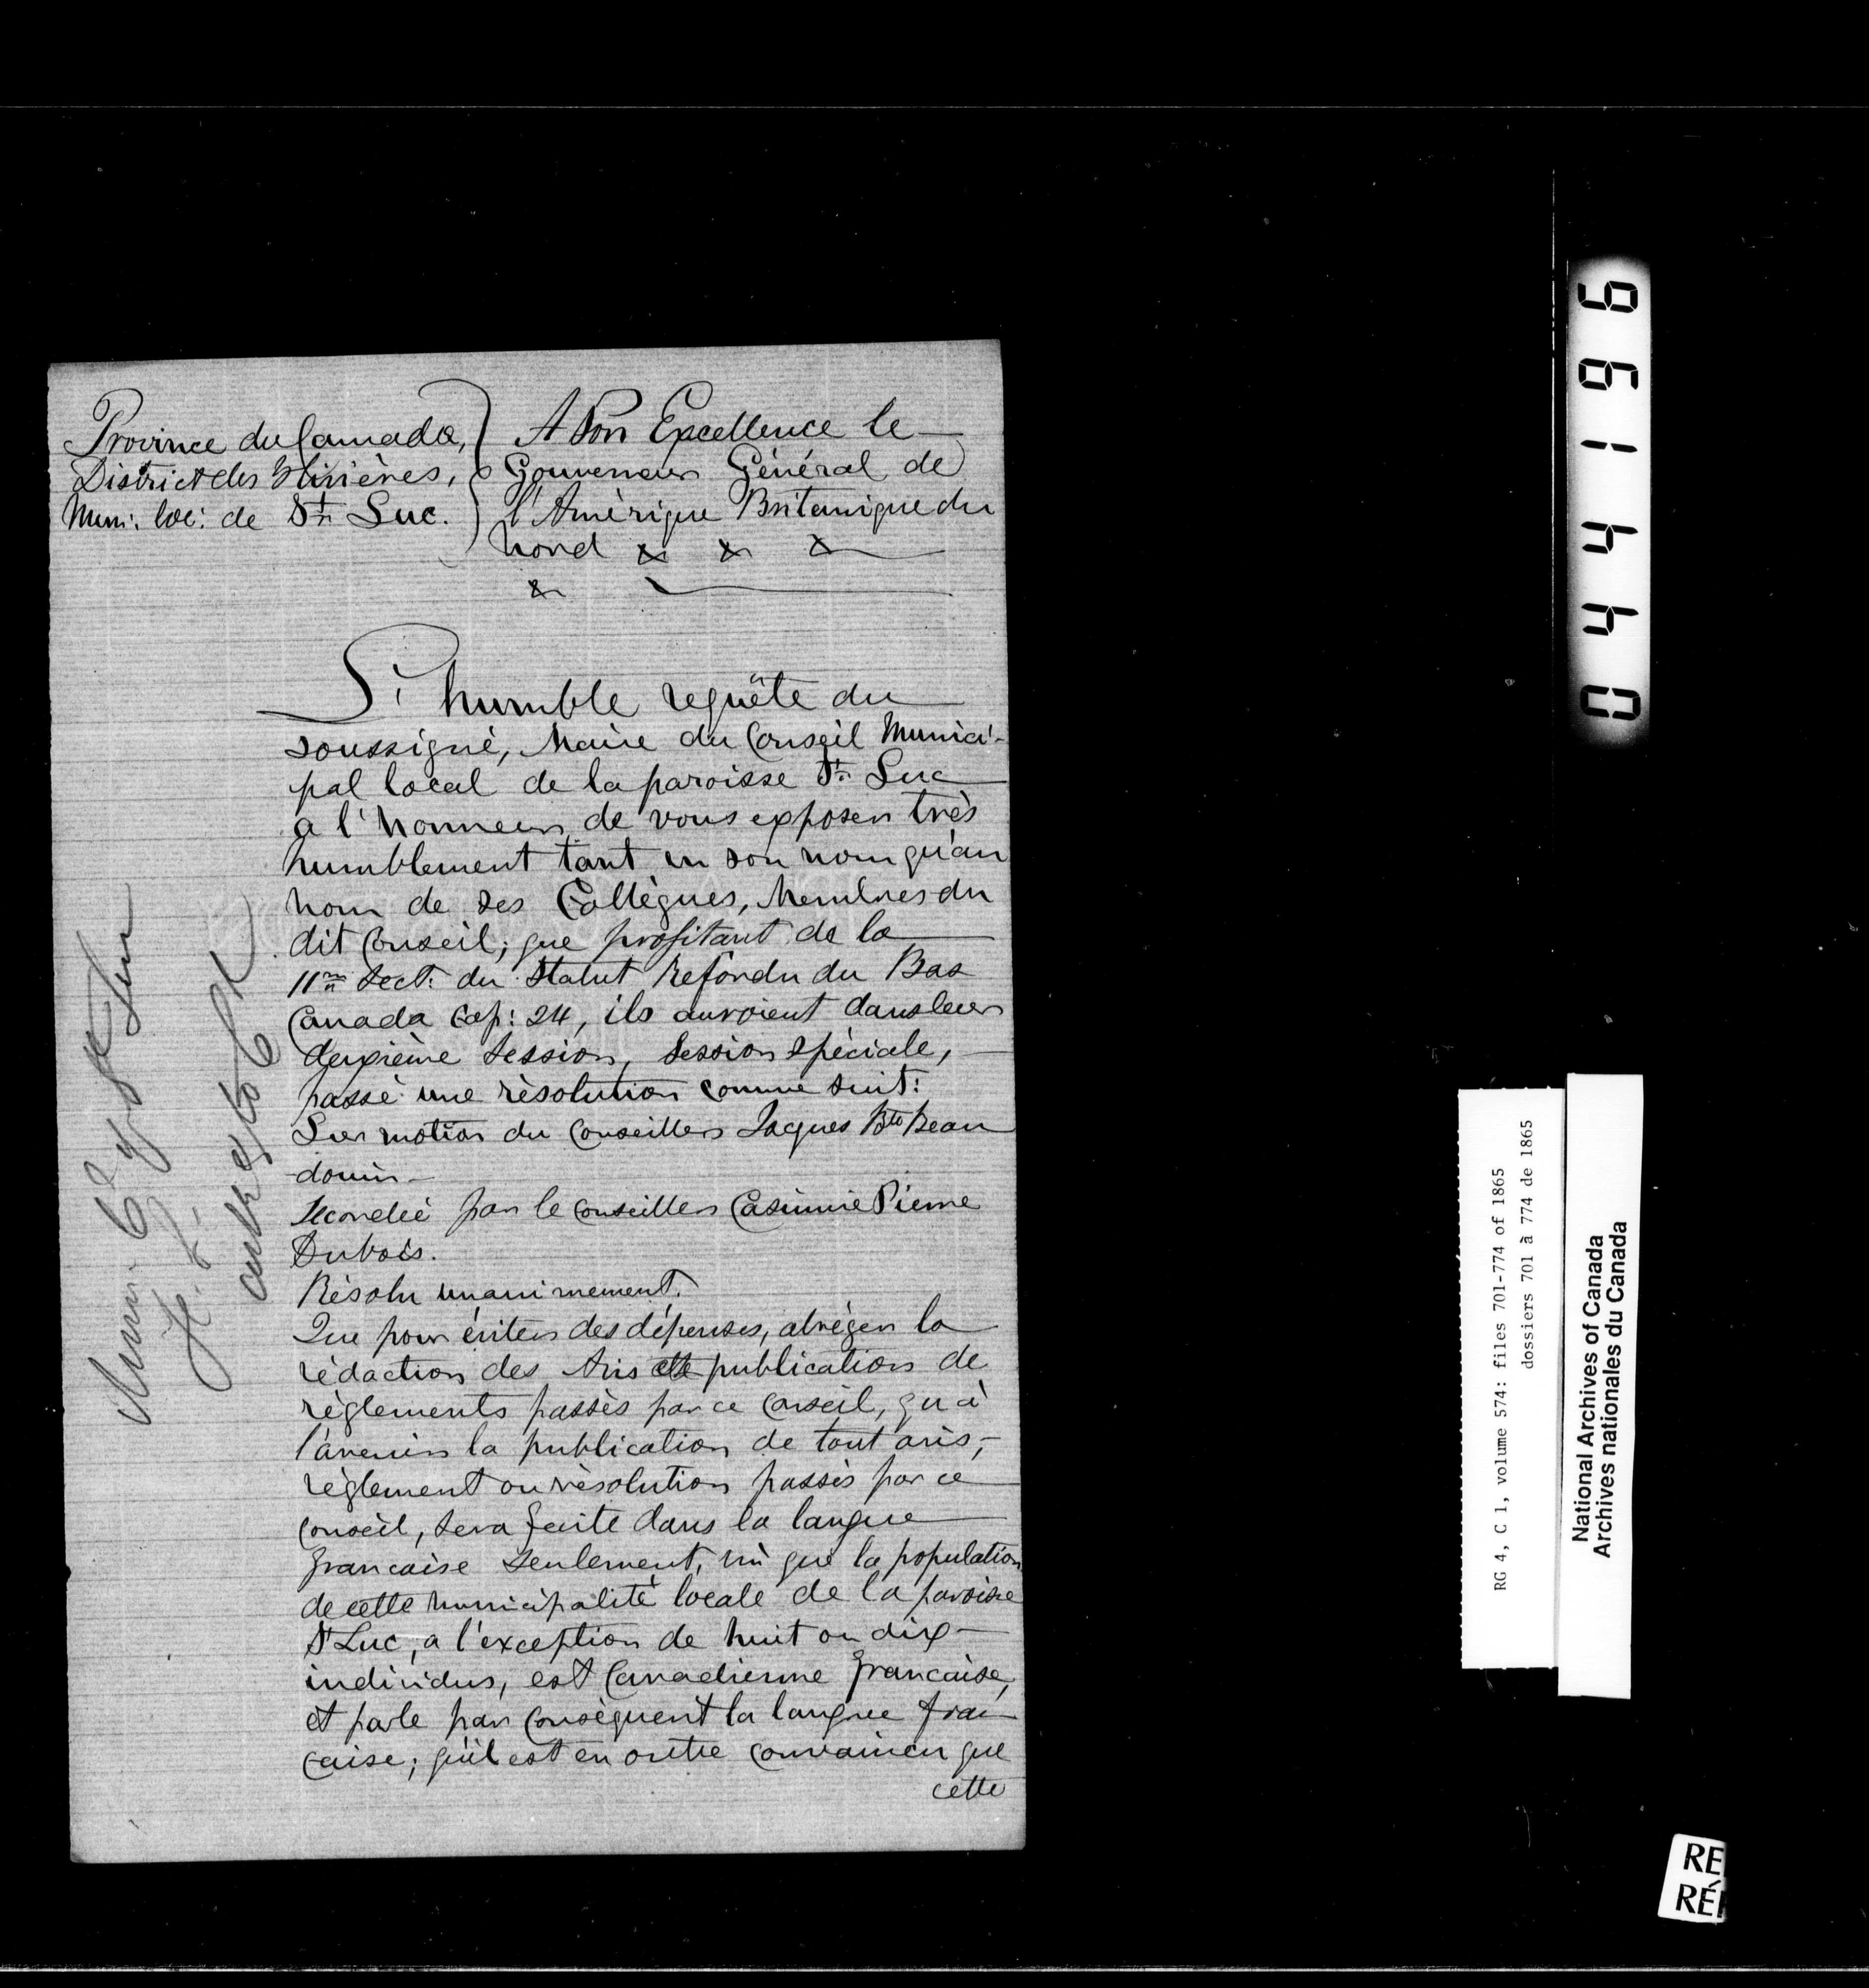 Province du Canada,
District des 3 Rivières,
Muni. loc: de St. Luc.
A Son Excellence le
Gouverneur Général de
l'Amérique Britanique du
Nord & & &
&
L'humble requête du
soussigné, Maire du Conseil Munici-
pal local de la paroisse St. Luc
a l'honneur de vous exposer très
humblement tant en son nom qu'au
nom de ses Collègues, Membres du
dit Conseil; que profitant de la
11me Sect: du Statut Refondu du Bas
Canada Cap: 24, ils auroient dans leur
deuxième Session, Session Spéciale,
passé une résolution comme suit:
Sur motion du Conseiller Jacques Bte Beau
-douin-
Secondée par le Conseiller Casimire Pierre
Dubois.
Résolu unanimement.
Que pour éviter des dépenses, abréger la
rédaction des Avis et la publication de
règlements passés par ce Conseil, qu'à
l'avenir la publication de tout avis,
règlement ou résolution passés par ce
Conseil, sera faite dans la langue
francaise seulement, vû que la population
de cette municipalité locale de la paroisse
St Luc, a l'exception de huit ou dix
individus, est Canadienne francaise,
et parle par conséquent la langue fran
caise; qu'il est en outre convaincu que
cette
Muni. Cl of St Luc
044196
RG 4, C 1, volume 574: files 701-774 of 1865
dossiers 701 à 774 de 1865
National Archives of Canada
Archives nationales du Canada
RE
RÉ